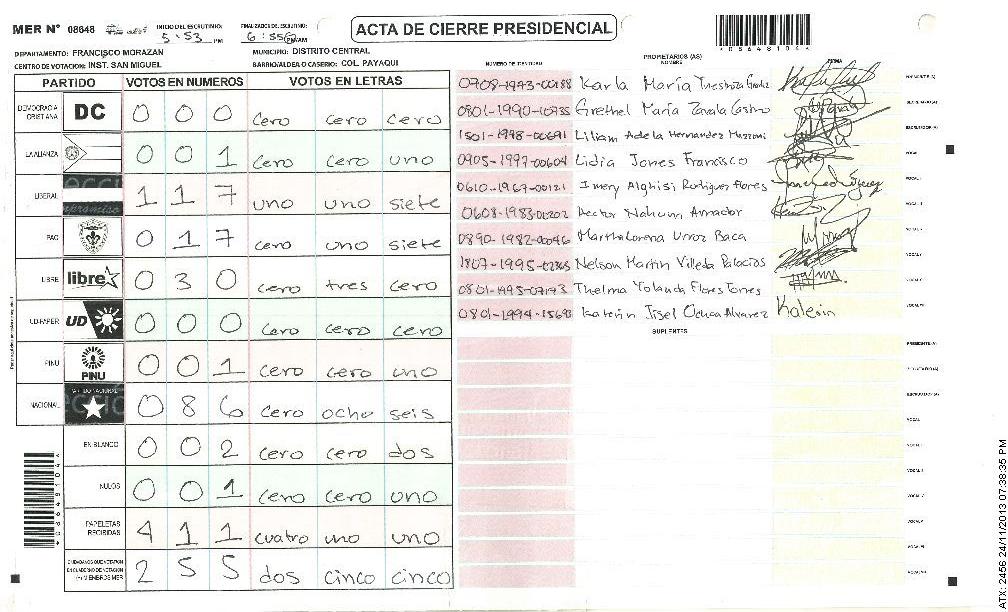 MER Nº 08648
INICIO DEL ESCRUTINIO:
5:53 PM
FINALIZACION DEL ESCRUTINIO:
6:55 PM AM
ACTA DE CIERRE PRESIDENCIAL
DEPARTAMENTO: FRANCISCO MORAZAN
MUNICIPIO: DISTRITO CENTRAL
CENTRO DE VOTACION: INST. SAN MIGUEL
BARRIO/ALDEA O CASERIO: COL. PAYAQUI
PARTIDO VOTOS EN NUMEROS VOTOS EN LETRAS
DEMOCRACIA CRISTIANA DC 0 0 0 cero cero cero
LA ALIANZA 0 0 1 cero cero uno
LIBERAL 1 1 7 uno uno siete
PAC 0 1 7 cero uno siete
LIBRE libre 0 3 0 cero tres cero
UD-FAPER UD 0 0 0 cero cero cero
PINU PINU 0 0 1 cero cero uno
NACIONAL 0 8 6 cero ocho seis
EN BLANCO 0 0 2 cero cero dos
NULOS 0 0 1 cero cero uno
PAPELETAS RECIBIDAS 4 1 1 cuatro uno uno
CIUDADANOS QUE VOTARON EN CUADERNO DE VOTACION (+) MIEMBROS MER 2 5 5 dos cinco cinco
NUMERO DE IDENTIDAD PROPIETARIOS (AS) NOMBRE FIRMA
Karla María
0801-1990-10735 Grethel María Zavala Castro
1501-1998-00691 Liliam Adela Hernandez
0905-1997-00604 Lidia Jones Francisco
0610-1967-00121 Rodriguez Flores
0608-1983-00202 Hector Nahum Amador
0890-1982-00046 Martha Lorena Urroz Baca
Nelson Martin Villeda Palacios
0801-1995-07193 Thelma Yolanda Flores Torres
0801-1994-15693 Katerin Jisel Ochoa Alvarez Katerin
SUPLENTES
ATX: 2456 24/11/2013 07:38:35 PM